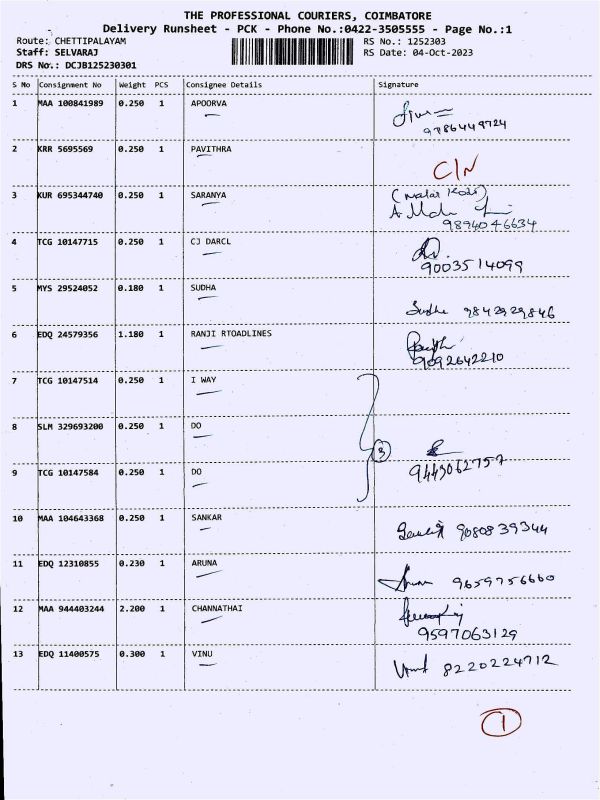 THE PROFESSIONAL COURIERS, COIMBATORE
Delivery Runsheet - PCK - Phone No.:0422-3505555 - Page No.:1
Route: CHETTIPALAYAM RS No.: 1252303
Staff: SELVARAJ RS Date: 04-Oct-2023
DRS No.: DCJB125230301
S No Consignment No Weight PCS Consignee Details Signature
1 MAA 100841989 0.250 1 APOORVA
9786449724
2 KRR 5695569 0.250 1 PAVITHRA
C/N
3 KUR 695344740 0.250 1 SARANYA
9894046634
4 TCG 10147715 0.250 1 CJ DARCL
9003514099
5 MYS 29524052 0.180 1 SUDHA
Sudha 9842929846
6 EDQ 24579356 1.180 1 RANJI RTOADLINES
9092642210
7 TCG 10147514 0.250 1 I WAY
8 SLM 329693200 0.250 1 DO
3
9 TCG 10147584 0.250 1 DO
9443062757
10 MAA 104643368 0.250 1 SANKAR
9080839344
11 EDQ 12310855 0.230 1 ARUNA
9659756660
12 MAA 944403244 2.200 1 CHANNATHAI
9597063129
13 EDQ 11400575 0.300 1 VINU
8220224712
1